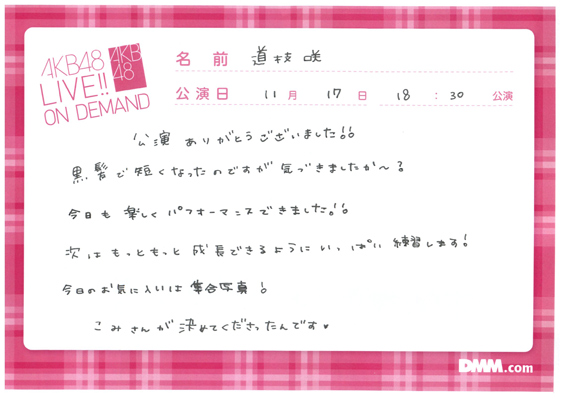 AKB48
LIVE!!
ON DEMAND
AKB
48
名前 道枝 咲
公演日 11月 17日 18:30 公演
公演 ありがとうございました!!
黒髪で短くなったのですが気づきましたか〜?
今日も楽しくパフォーマンスできました!!
次はもっともっと成長できるようにいっぱい練習します!
今日のお気に入りは集合写真!
こみさんが決めてくださったんです♥
DMM.com